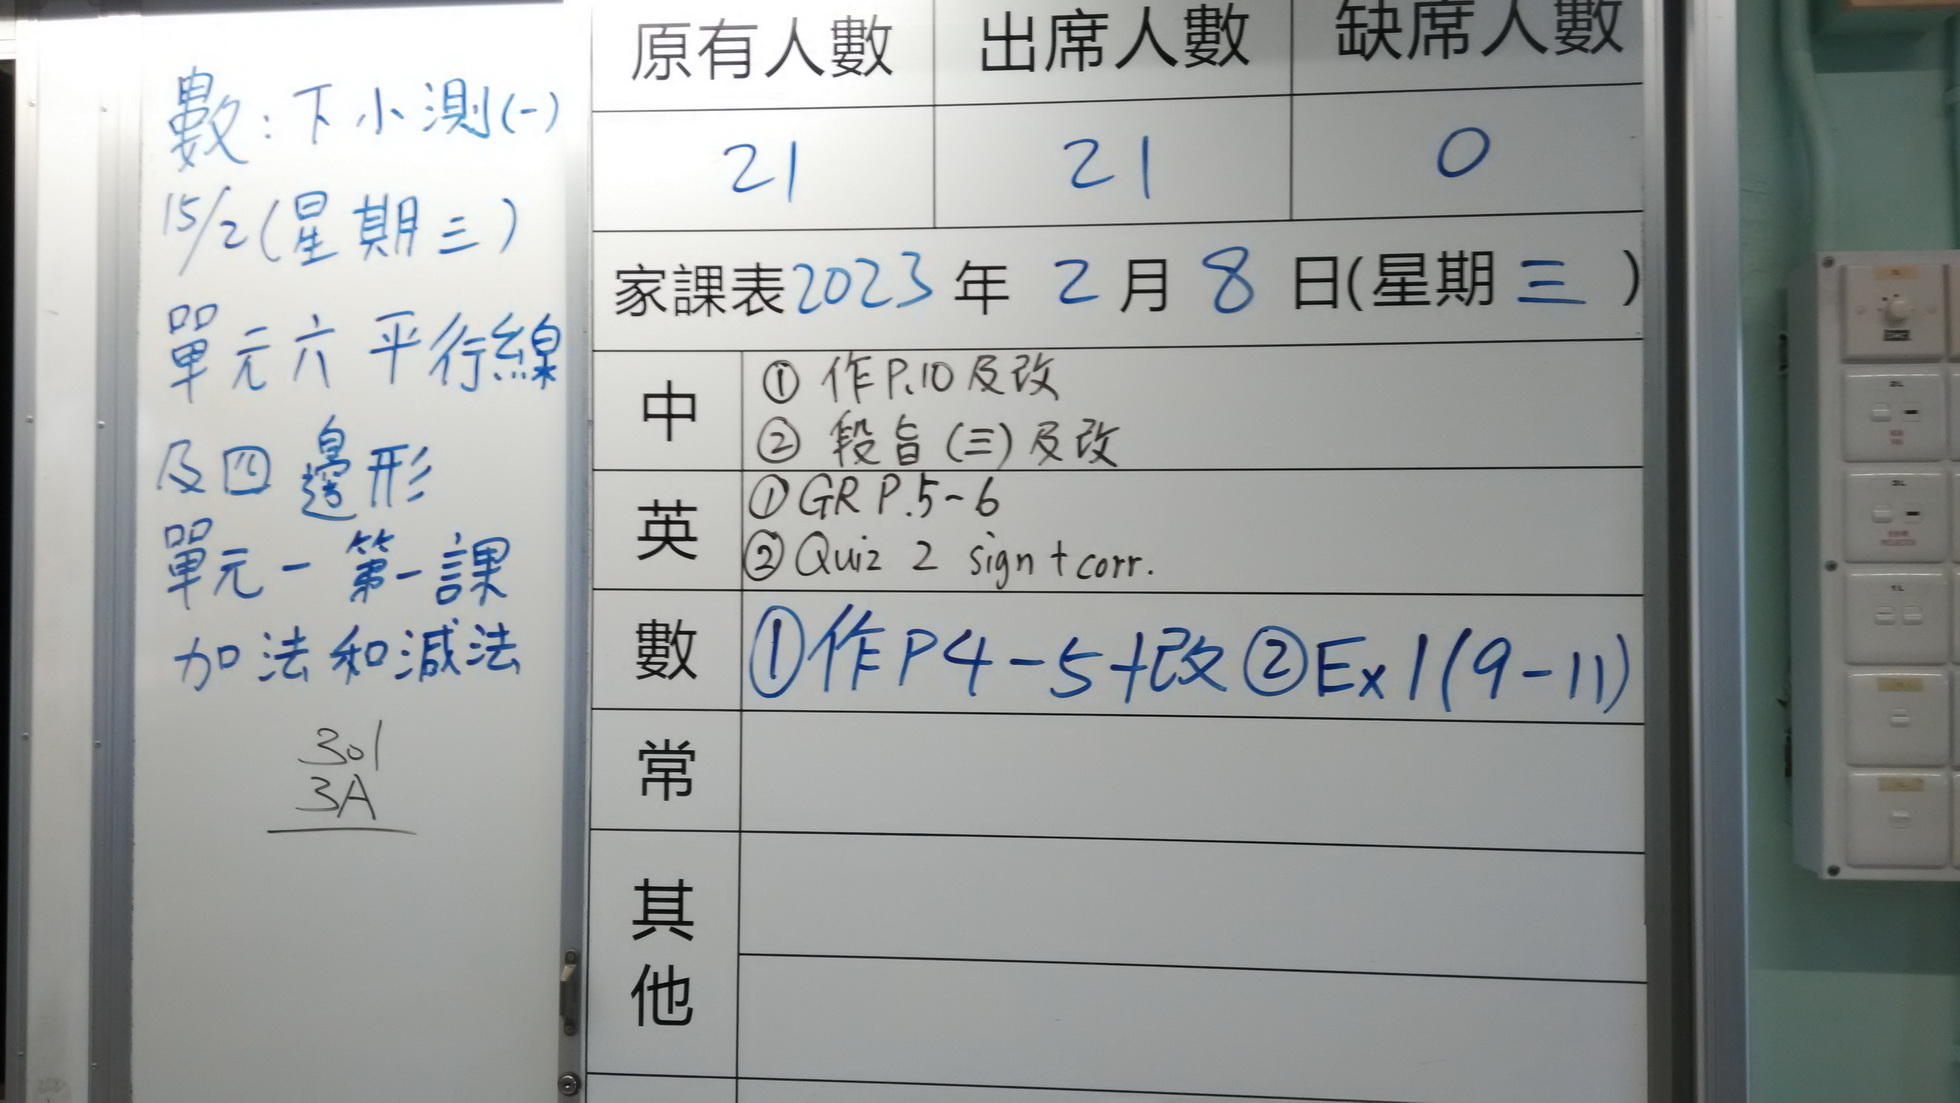 數：下小測(一)
15/2(星期三)
單元六 平行線
及四邊形
單元一 第一課
加法和減法
301
3A
原有人數 出席人數 缺席人數
21 21 0
家課表2023年 2月 8日(星期三)
中 ① 作P.10及改
② 段旨(三)及改
英 ①GR P.5-6
②Quiz 2 sign+corr.
數 ①作P4-5+改②Ex1(9-11)
常
其他